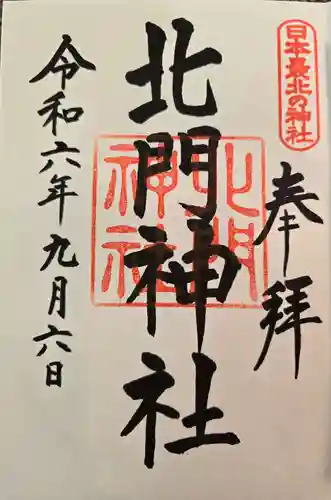 日本最北の神社
奉拝
北門神社
北門
神社
令和六年九月六日